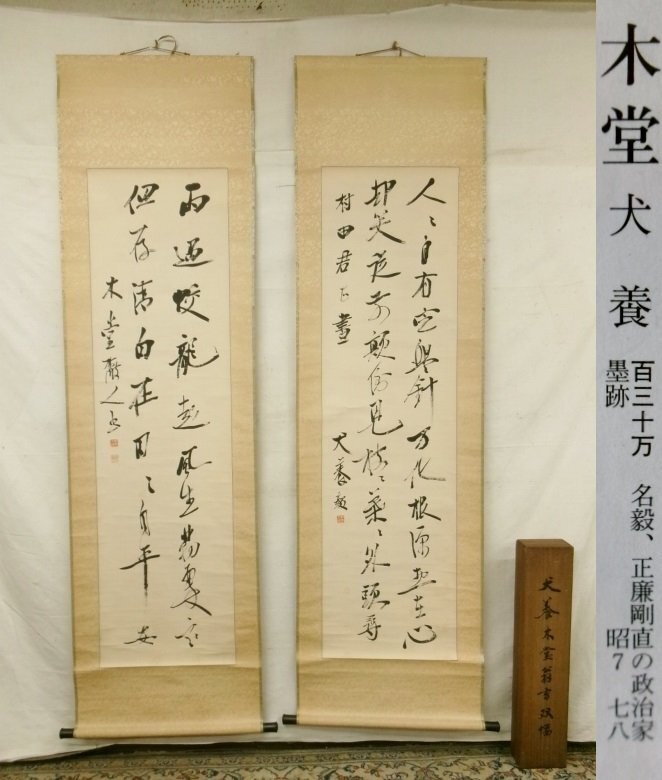 木堂 犬養
百三十万 名毅、正廉剛直の政治家
墨跡 昭7 七八
人〻自有定盤針万化根源総在心
却笑従前顛倒見枝〻葉〻外頭尋
村田君正 犬養毅
雨過蛟龍起風生
但存清白在日〻自平安
木堂
犬養木堂翁書双幅